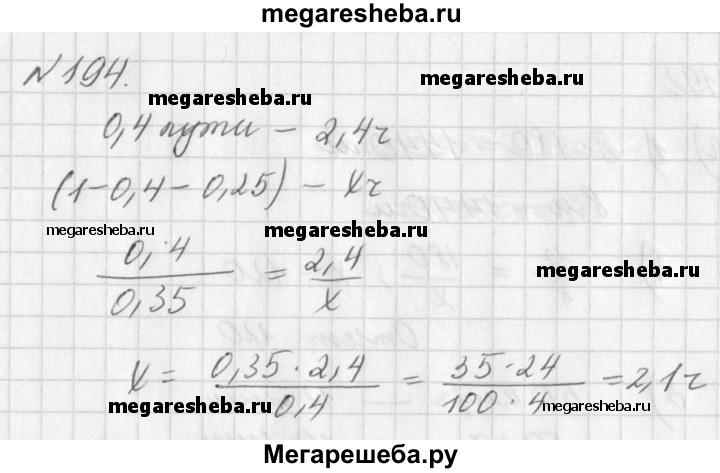 megaresheba.ru
№ 194.
megaresheba.ru
megaresheba.ru
0,4 пути – 2,4 ч
(1–0,4–0,25) – x ч
megaresheba.ru
0,4 / 0,35 = 2,4 / x
megaresheba.ru
x = 0,35·2,4 / 0,4 = 35·24 / 100·4 = 2,1 ч
megaresheba.ru
megaresheba.ru
Мегарешеба.ру